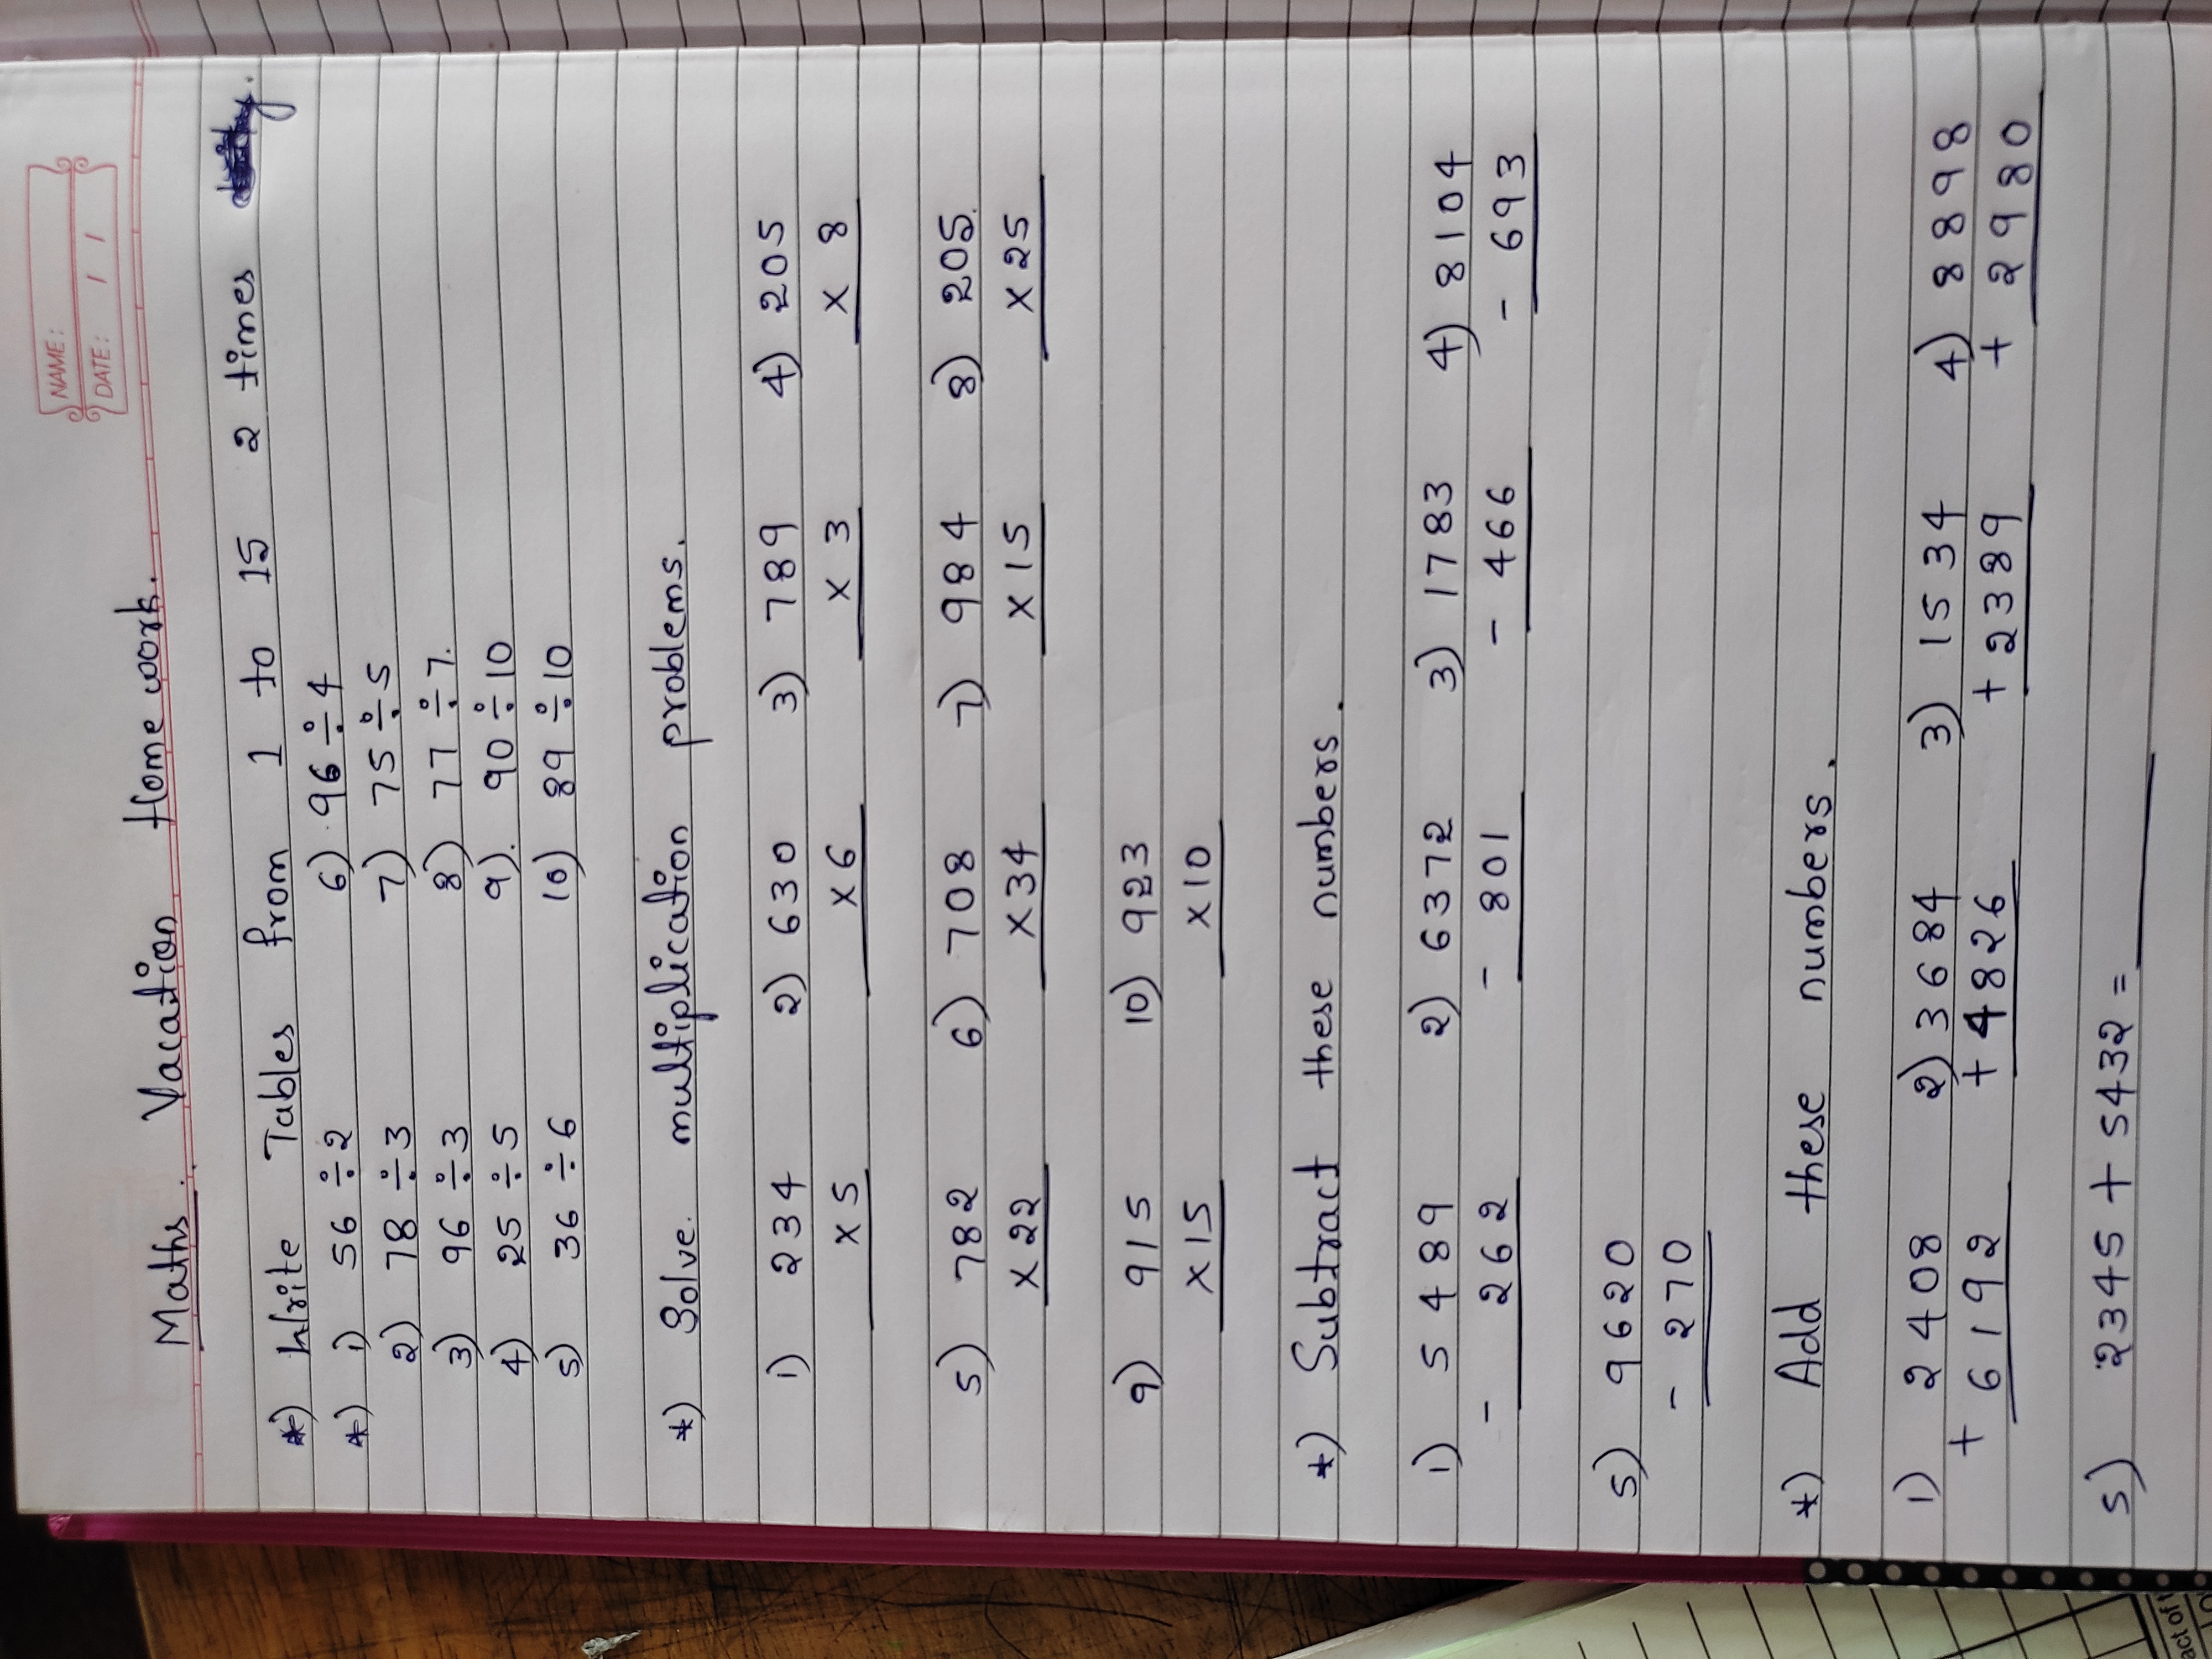 NAME:
DATE: / /
Maths. Vacation Home work.
*) Write Tables from 1 to 15 2 times
*) 1) 56 ÷ 2 6) 96 ÷ 4
2) 78 ÷ 3 7) 75 ÷ 5
3) 96 ÷ 3 8) 77 ÷ 7.
4) 25 ÷ 5 9). 90 ÷ 10
5) 36 ÷ 6 10) 89 ÷ 10
*) Solve. multiplication problems.
1) 234 2) 630 3) 789 4) 205
x 5 x 6 x 3 x 8
5) 782 6) 708 7) 984 8) 205.
x 22 x 34 x 15 x 25
9) 915 10) 923
x 15 x 10
*) Subtract these numbers.
1) 5489 2) 6372 3) 1783 4) 8104
- 262 - 801 - 466 - 693
5) 9620
- 270
*) Add these numbers.
1) 2408 2) 3684 3) 1534 4) 8898
+ 6192 + 4826 + 2389 + 2980
5) 2345 + 5432 =